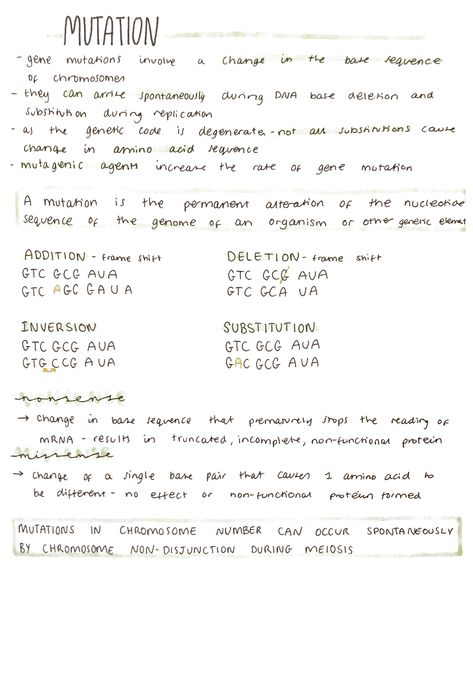 MUTATION
- gene mutations involve a change in the base sequence
of chromosomes
- they can arise spontaneously during DNA base deletion and
substitution during replication
- as the genetic code is degenerate - not all substitutions cause
change in amino acid sequence
- mutagenic agents increase the rate of gene mutation
A mutation is the permanent alteration of the nucleotide
sequence of the genome of an organism or other genetic element
ADDITION - frame shift
GTC GCG AUA
GTC AGC GAUA
DELETION - frame shift
GTC GCG AUA
GTC GCA UA
INVERSION
GTC GCG AUA
GTG CCG AUA
SUBSTITUTION
GTC GCG AUA
GAC GCG AUA
nonsense
→ change in base sequence that prematurely stops the reading of
mRNA - results in truncated, incomplete, non-functional protein
missense
→ change of a single base pair that causes 1 amino acid to
be different - no effect or non-functional protein formed
MUTATIONS IN CHROMOSOME NUMBER CAN OCCUR SPONTANEOUSLY
BY CHROMOSOME NON-DISJUNCTION DURING MEIOSIS